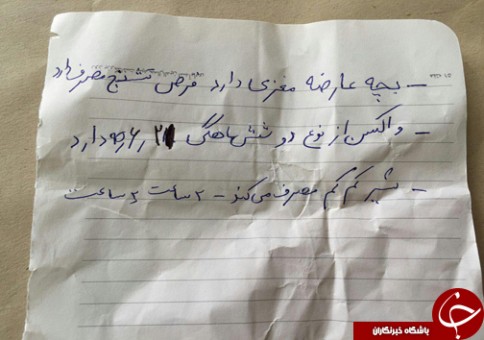 - بچه عارضه مغزی دارد قرص تشنج مصرف دارد
- واکسن از نوع دو شش ماهگی ۹۶٫۲ دارد
- شیر کم کم مصرف می‌کند - ۲ ساعت ۲ ساعت
باشگاه خبرنگاران